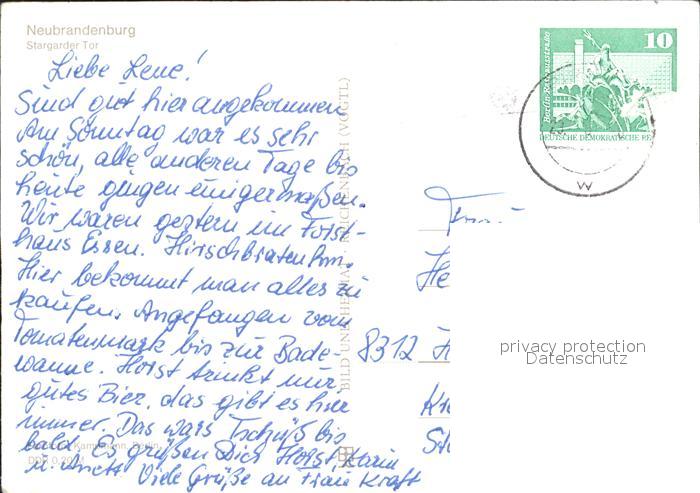 Neubrandenburg
Stargarder Tor
Liebe Lene!
Sind gut hier angekommen
Am Sonntag war es sehr
schön, alle anderen Tage bis
heute gingen einigermaßen.
Wir waren gestern im Forst-
haus Essen. Hirschbraten
Hier bekommt man alles zu
kaufen. Angefangen vom
Tomatenmark bis zur Bade-
wanne. Horst trinkt nur
gutes Bier, das gibt es hier
immer. Das wars Tschüß bis
bald. Es grüßen Dich Horst, Karin
u. Viele Grüße an Frau Kraft
BILD UND HEIMAT REICHENBACH (VOGTL)
10
Berlin-Rathausstraße
DEUTSCHE DEMOKRATISCHE RE
W
He
8312 H
privacy protection
Datenschutz